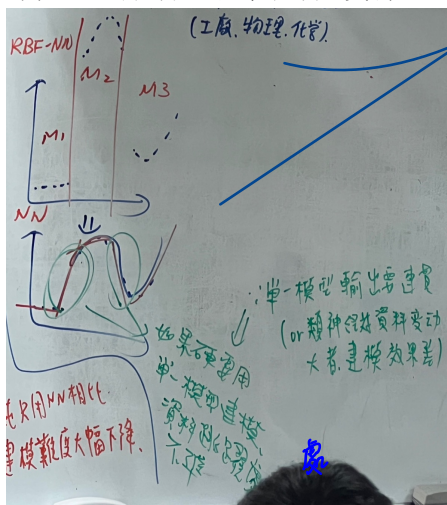 (工廠、物理、化學)
RBF-NN
M1
M2
M3
NN
∵單一模型輸出要連貫
(or 類神經對資料變動
大者,建模效果差)
如果硬要用
單一模型建模,
用NN相比
建模難度大幅下降、
處